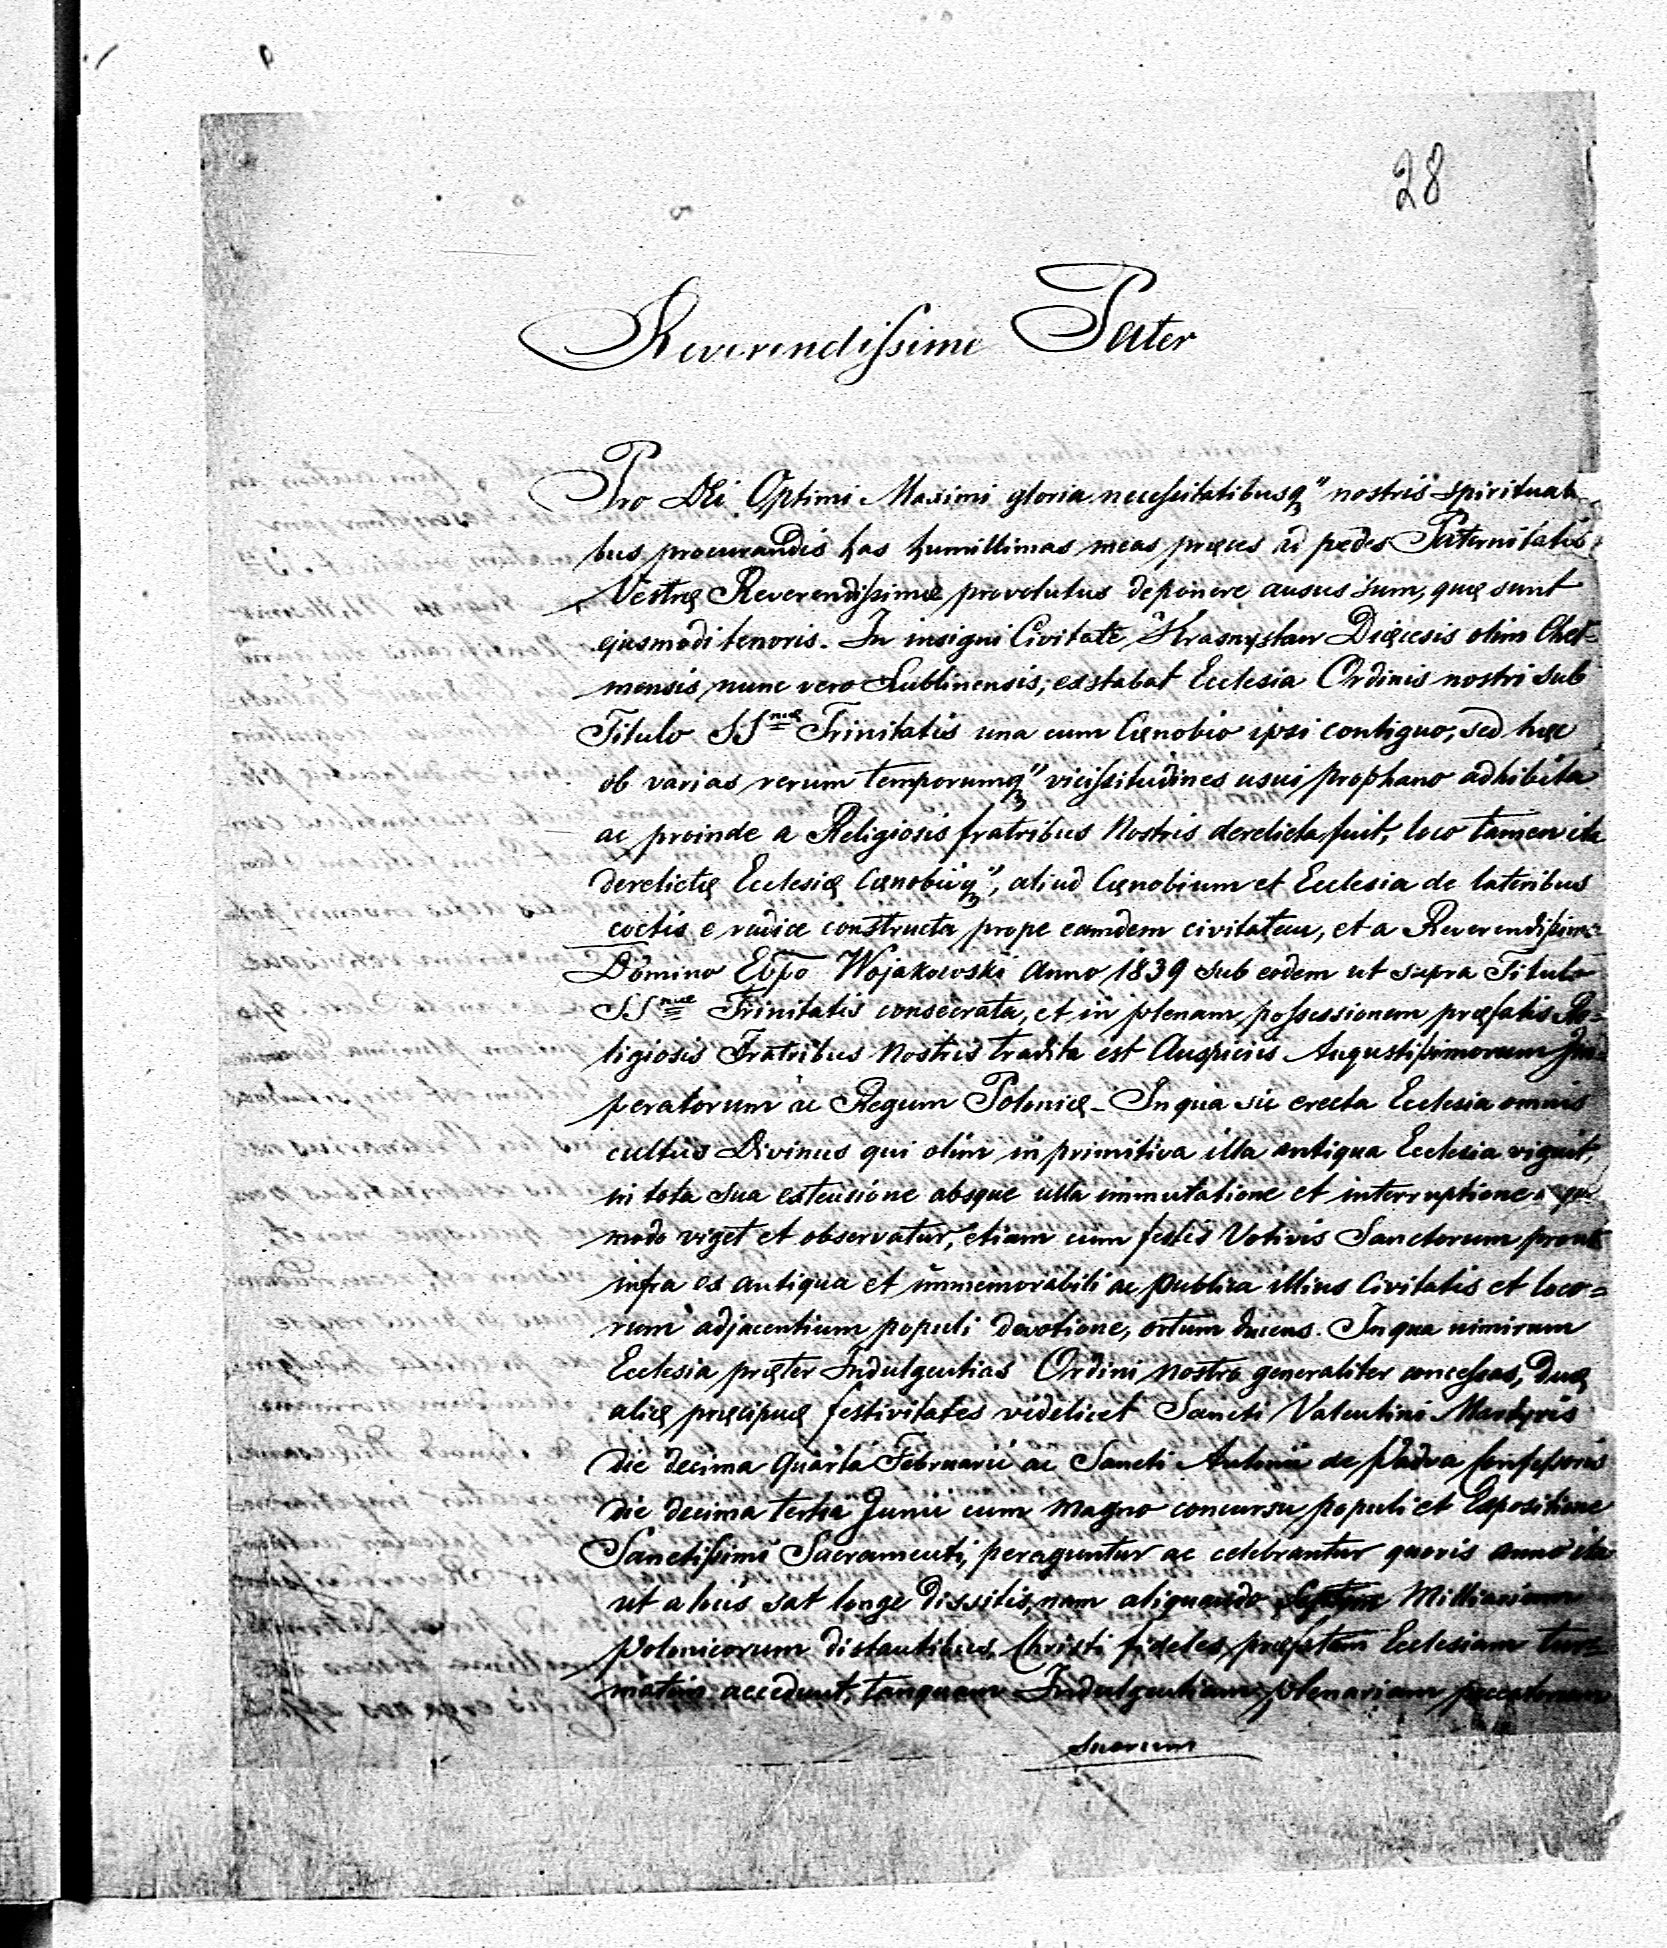 28
Reverendissime Pater
Pro DEi Optimi Maximi gloria necessitatibusq" nostris spirituali-
bus procurandis has humillimas meas pręces ad pedes Paternitatis
Vestrę Reverendissimæ provolutus deponere ausus sum, quę sunt
ejusmodi tenoris. In insigni Civitate Krasnystaw Dięcesis olim Chel=
mensis nunc vero Lublinensis, exstabat Ecclesia Ordinis nostri sub
Titulo SSmę Trinitatis una cum Cęnobio ipsi contiguo, sed hęc
ob varias rerum temporumq" vicissitudines usui prophano adhibita
ac proinde a Religiosis fratribus Nostris derelicta fuit, loco tamen ita
derelictę Ecclesię Cęnobiiq", aliud Cęnobium et Ecclesia de lateribus
coctis e radice constructa prope eamdem civitatem, et a Reverendissimo
Domino Eppo Wojakowski Anno 1839 sub eodem ut supra Titulo
SSmæ Trinitatis consecrata, et in plenam possessionem pręfatis Re=
ligiosis Fratribus Nostris tradita est Auspiciis Augustissimorum Im=
peratorum ac Regum Polonię - In qua sic erecta Ecclesia omnis
cultus Divinus qui olim in primitiva illa antiqua Ecclesia viguit,
in tota sua extensione absque ulla immutatione et interruptione
modo viget et observatur, etiam cum festis Votivis Sanctorum prout
infra ex antiqua et immemorabili ac publica illius Civitatis et loco=
rum adjacentium populi devotione, ortum ducens. In qua nimirum
Ecclesia pręter Indulgentias Ordini nostro generaliter concessas, duę
alię pręcipuę festivitates videlicet Sancti Valentini Martyris
die decima quarta Februarii ac Sancti Antonii de Padva Confessoris
die decima tertia Junii cum magno concursu populi et Expositione
Sanctissimi Sacramenti, peraguntur ac celebrantur quovis anno ita
ut a locis sat longe dissitis, nam aliquando septem Milliarium
polonicorum distantibus, Christi fideles pręfatam Ecclesiam tur=
matim accedunt, tanquam Indulgentiam plenariam peccatorum
suorum